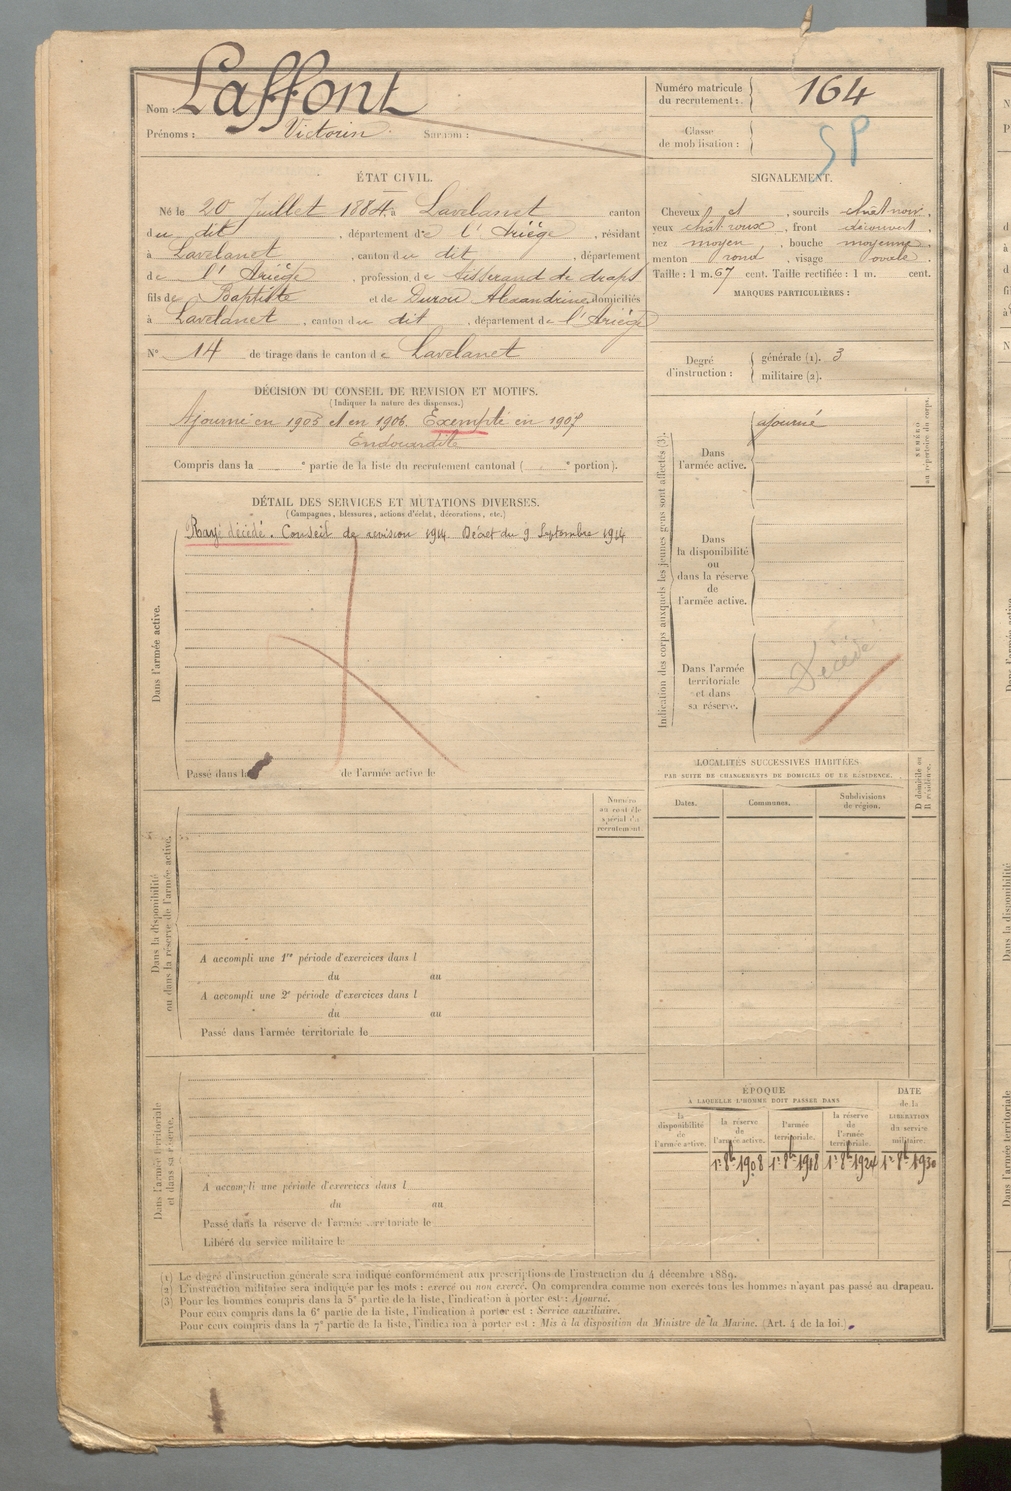 Nom : Laffont
Prénoms : Victorin Surnom :
Numéro matricule
du recrutement : 164
Classe
de mobilisation :
SP
ÉTAT CIVIL.
Né le 20 Juillet 1884, à Lavelanet canton
du dit, département de l'Ariège, résidant
à Lavelanet, canton du dit, département
de l'Ariège, profession de tisserand de draps
fils de Baptiste et de Durou Alexandrine, domiciliés
à Lavelanet, canton du dit, département de l'Ariège
N° 14 de tirage dans le canton de Lavelanet
SIGNALEMENT.
Cheveux et, sourcils chât noir,
yeux chât roux, front découvert,
nez moyen, bouche moyenne,
menton rond, visage ovale.
Taille : 1 m. 67 cent. Taille rectifiée : 1 m. cent.
MARQUES PARTICULIÈRES :
Degré
d'instruction :
générale (1). 3
militaire (2).
DÉCISION DU CONSEIL DE REVISION ET MOTIFS.
(Indiquer la nature des dispenses.)
Ajourné en 1905 et en 1906. Exempté en 1907
Endocardite
Compris dans la e partie de la liste du recrutement cantonal ( e portion).
DÉTAIL DES SERVICES ET MUTATIONS DIVERSES.
(Campagnes, blessures, actions d'éclat, décorations, etc.)
Dans l'armée active.
Rayé décédé. Conseil de revision 1914. Décret du 9 Septembre 1914
Passé dans la de l'armée active le
Indication des corps auxquels les jeunes gens sont affectés (3).
NUMÉRO
au répertoire du corps.
Dans
l'armée active.
ajourné
Dans
la disponibilité
ou
dans la réserve
de
l'armée active.
Dans l'armée
territoriale
et dans
sa réserve.
Décédé
LOCALITÉS SUCCESSIVES HABITÉES
PAR SUITE DE CHANGEMENTS DE DOMICILE OU DE RÉSIDENCE.
D domicile ou
R résidence.
Dates.
Communes.
Subdivisions
de région.
Dans la disponibilité
ou dans la réserve de l'armée active.
Numéro
au contrôle
spécial du
recrutement.
A accompli une 1re période d'exercices dans l
du au
A accompli une 2e période d'exercices dans l
du au
Passé dans l'armée territoriale le
Dans l'armée territoriale
et dans sa réserve.
A accompli une période d'exercices dans l
du au
Passé dans la réserve de l'armée territoriale le
Libéré du service militaire le
ÉPOQUE
À LAQUELLE L'HOMME DOIT PASSER DANS
DATE
de la
LIBÉRATION
du service
militaire.
la
disponibilité
de
l'armée active.
la réserve
de
l'armée active.
l'armée
territoriale.
la réserve
de
l'armée
territoriale.
1er 8bre 1908 1er 8bre 1918 1er 8bre 1924 1er 8bre 1930
(1) Le degré d'instruction générale sera indiqué conformément aux prescriptions de l'instruction du 4 décembre 1889.
(2) L'instruction militaire sera indiquée par les mots : exercé ou non exercé. On comprendra comme non exercés tous les hommes n'ayant pas passé au drapeau.
(3) Pour les hommes compris dans la 5e partie de la liste, l'indication à porter est : Ajourné.
Pour ceux compris dans la 6e partie de la liste, l'indication à porter est : Service auxiliaire.
Pour ceux compris dans la 7e partie de la liste, l'indication à porter est : Mis à la disposition du Ministre de la Marine. (Art. 4 de la loi.)